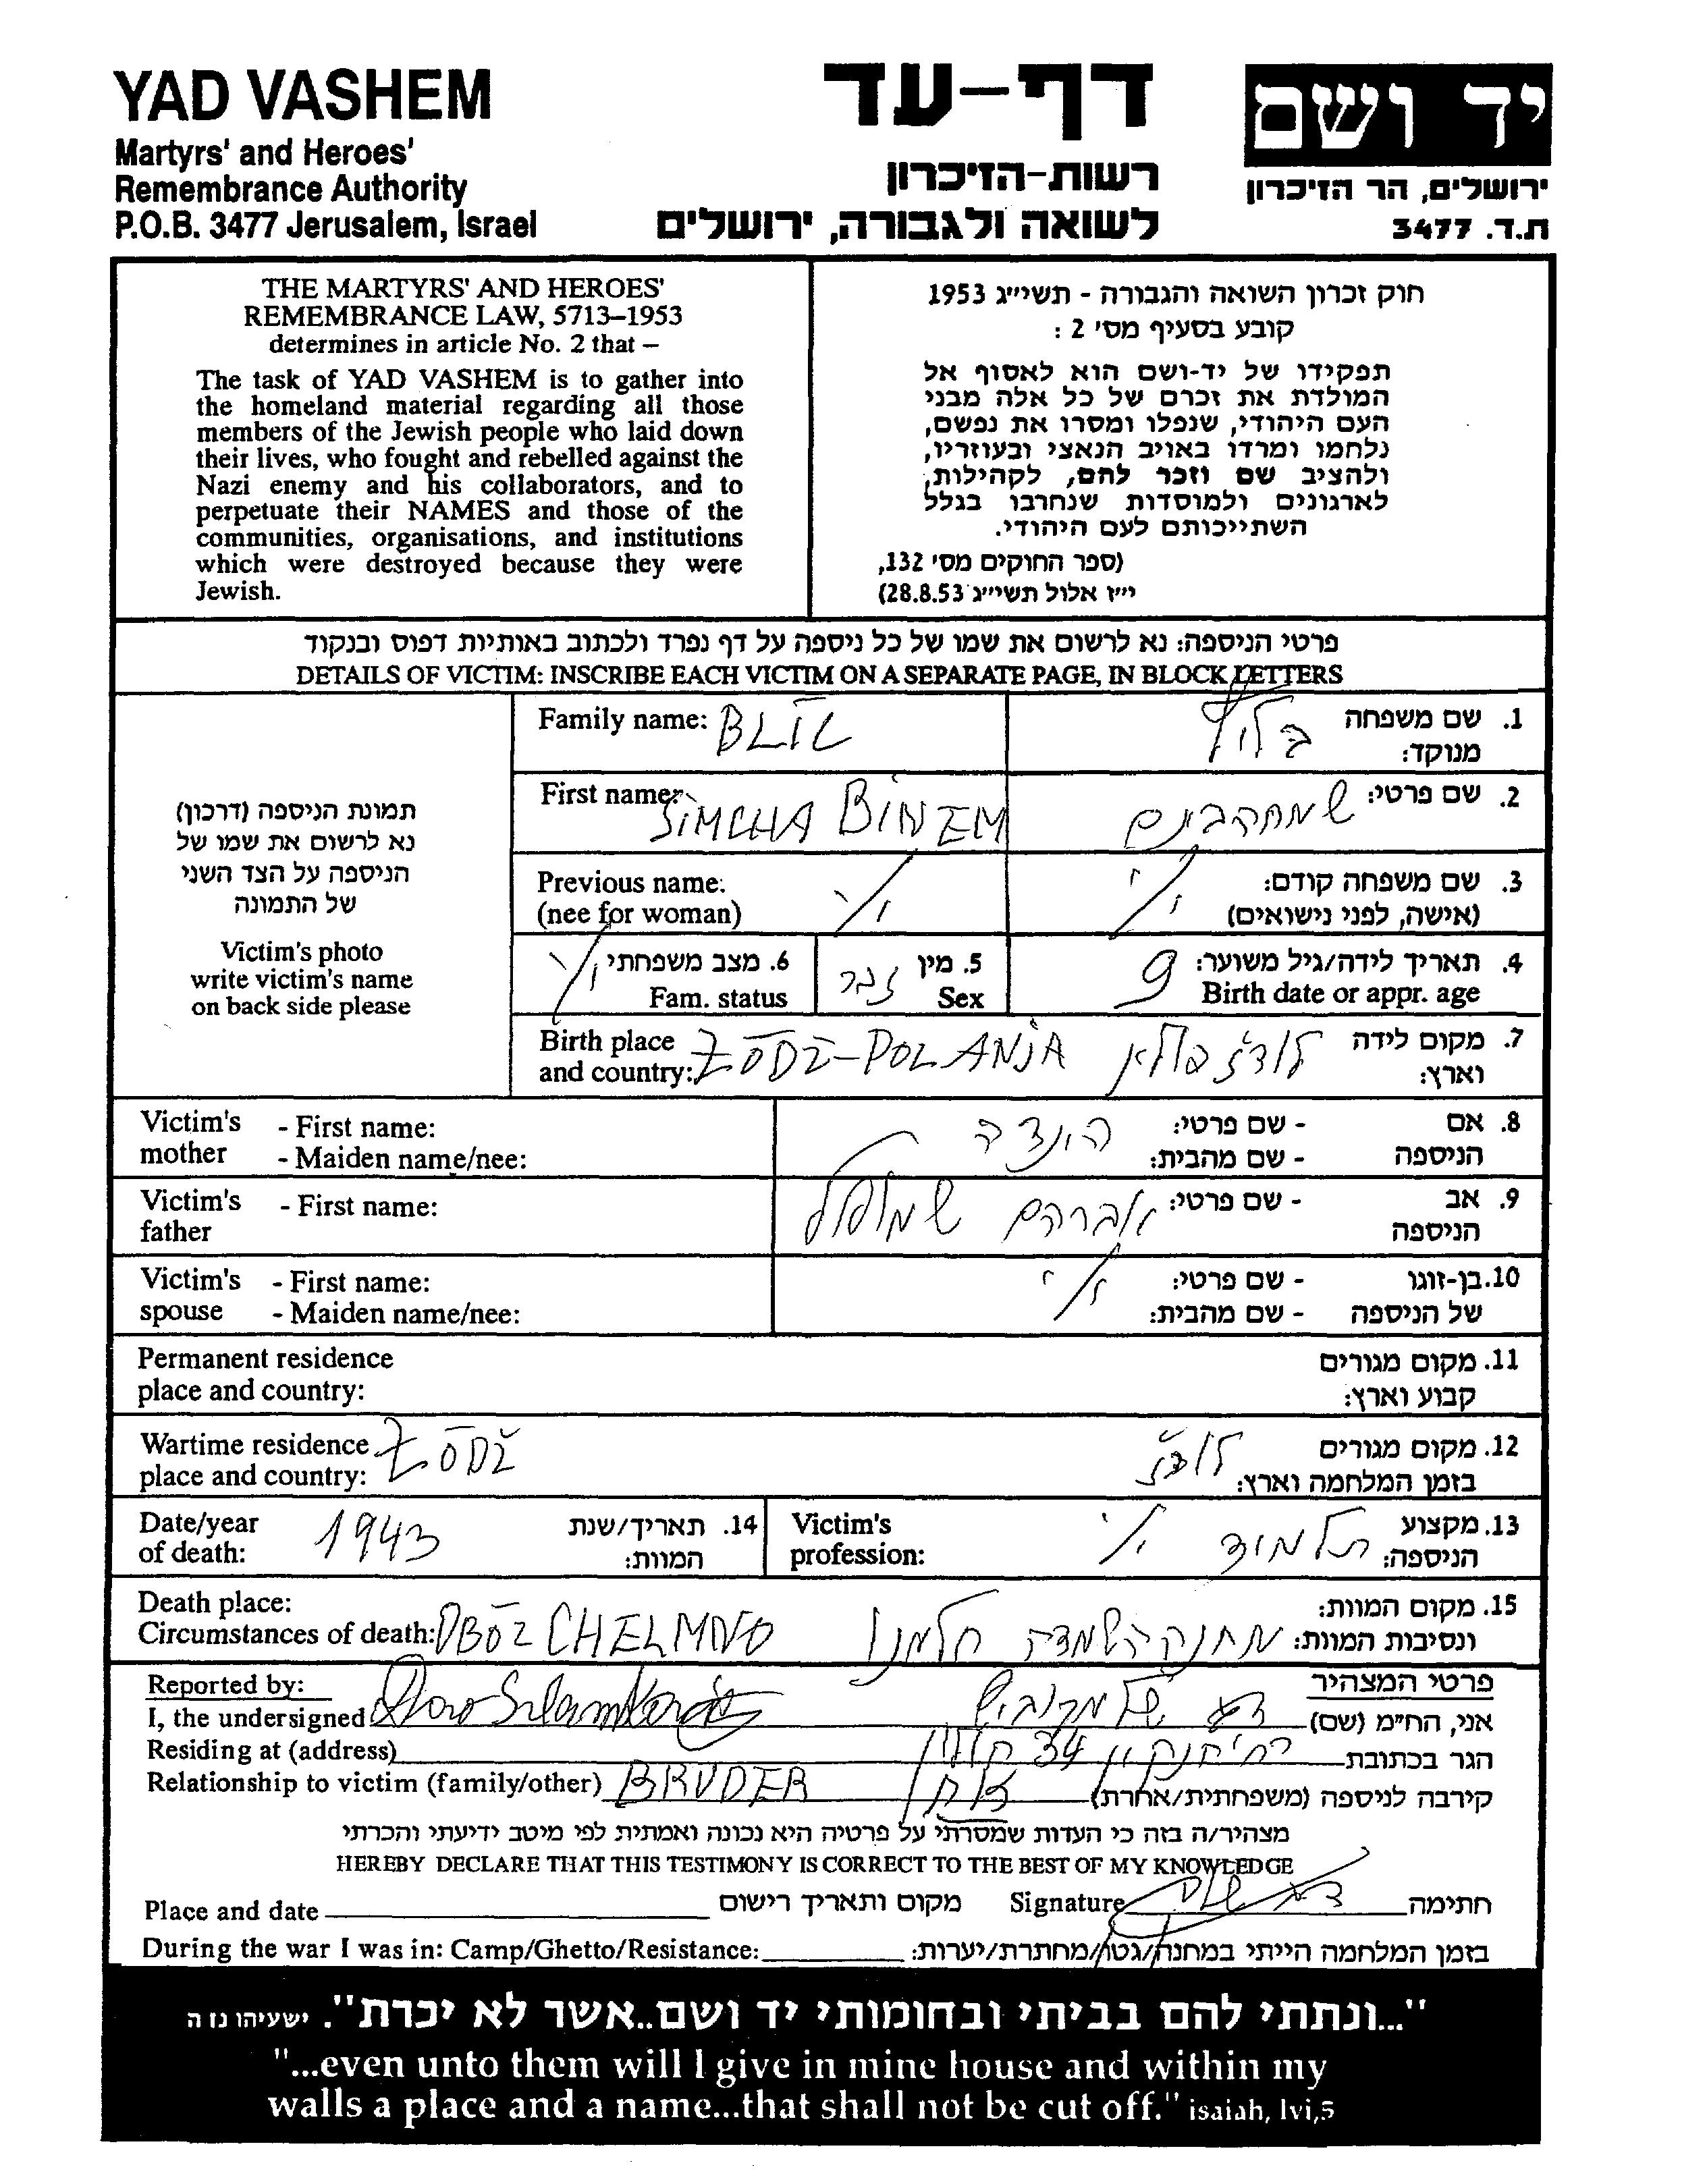 YAD VASHEM
Martyrs' and Heroes'
Remembrance Authority
P.O.B. 3477 Jerusalem, Israel
דף-עד
רשות-הזיכרון
לשואה ולגבורה, ירושלים
יד ושם
ירושלים, הר הזיכרון
ת.ד. 3477
THE MARTYRS' AND HEROES'
REMEMBRANCE LAW, 5713–1953
determines in article No. 2 that –
The task of YAD VASHEM is to gather into
the homeland material regarding all those
members of the Jewish people who laid down
their lives, who fought and rebelled against the
Nazi enemy and his collaborators, and to
perpetuate their NAMES and those of the
communities, organisations, and institutions
which were destroyed because they were
Jewish.
חוק זכרון השואה והגבורה - תשי״ג 1953
קובע בסעיף מס' 2 :
תפקידו של יד-ושם הוא לאסוף אל
המולדת את זכרם של כל אלה מבני
העם היהודי, שנפלו ומסרו את נפשם,
נלחמו ומרדו באויב הנאצי ובעוזריו,
ולהציב שם וזכר להם, לקהילות,
לארגונים ולמוסדות שנחרבו בגלל
השתייכותם לעם היהודי.
(ספר החוקים מס' 132,
י״ז אלול תשי״ג 28.8.53)
פרטי הניספה: נא לרשום את שמו של כל ניספה על דף נפרד ולכתוב באותיות דפוס ובנקוד
DETAILS OF VICTIM: INSCRIBE EACH VICTIM ON A SEPARATE PAGE, IN BLOCK LETTERS
תמונת הניספה (דרכון)
נא לרשום את שמו של
הניספה על הצד השני
של התמונה
Victim's photo
write victim's name
on back side please
Family name: BLIC
1. שם משפחה
מנוקד:
First name: SIMCHA BINEM
2. שם פרטי: שמחה בינם
Previous name:
(nee for woman)
3. שם משפחה קודם:
(אישה, לפני נישואים)
6. מצב משפחתי
Fam. status
5. מין זכר
Sex
4. תאריך לידה/גיל משוער: 9
Birth date or appr. age
Birth place
and country: ŁÓDŹ-POLANJA
7. מקום לידה
וארץ: לודז פולין
Victim's - First name:
mother - Maiden name/nee:
8. אם - שם פרטי: הינדה
הניספה - שם מהבית:
Victim's - First name:
father
9. אב - שם פרטי: אברהם שמואל
הניספה
Victim's - First name:
spouse - Maiden name/nee:
10. בן-זוגו - שם פרטי:
של הניספה - שם מהבית:
Permanent residence
place and country:
11. מקום מגורים
קבוע וארץ:
Wartime residence
place and country: ŁÓDŹ
12. מקום מגורים
בזמן המלחמה וארץ: לודז
Date/year
of death: 1943
14. תאריך/שנת
המוות:
Victim's
profession:
13. מקצוע
הניספה: תלמיד
Death place:
Circumstances of death: OBÓZ CHELMNO
15. מקום המוות:
ונסיבות המוות: מחנה השמדה חלמנו
Reported by:
I, the undersigned
פרטי המצהיר
אני, הח״מ (שם)
Residing at (address)
הגר בכתובת 34 חולון
Relationship to victim (family/other) BRUDER
קירבה לניספה (משפחתית/אחרת) אח
מצהיר/ה בזה כי העדות שמסרתי על פרטיה היא נכונה ואמתית לפי מיטב ידיעתי והכרתי
HEREBY DECLARE THAT THIS TESTIMONY IS CORRECT TO THE BEST OF MY KNOWLEDGE
Place and date
מקום ותאריך רישום
Signature
חתימה
During the war I was in: Camp/Ghetto/Resistance:
בזמן המלחמה הייתי במחנה/גטו/מחתרת/יערות:
"...ונתתי להם בביתי ובחומותי יד ושם..אשר לא יכרת". ישעיהו נו ה
"...even unto them will I give in mine house and within my
walls a place and a name...that shall not be cut off." isaiah, lvi,5